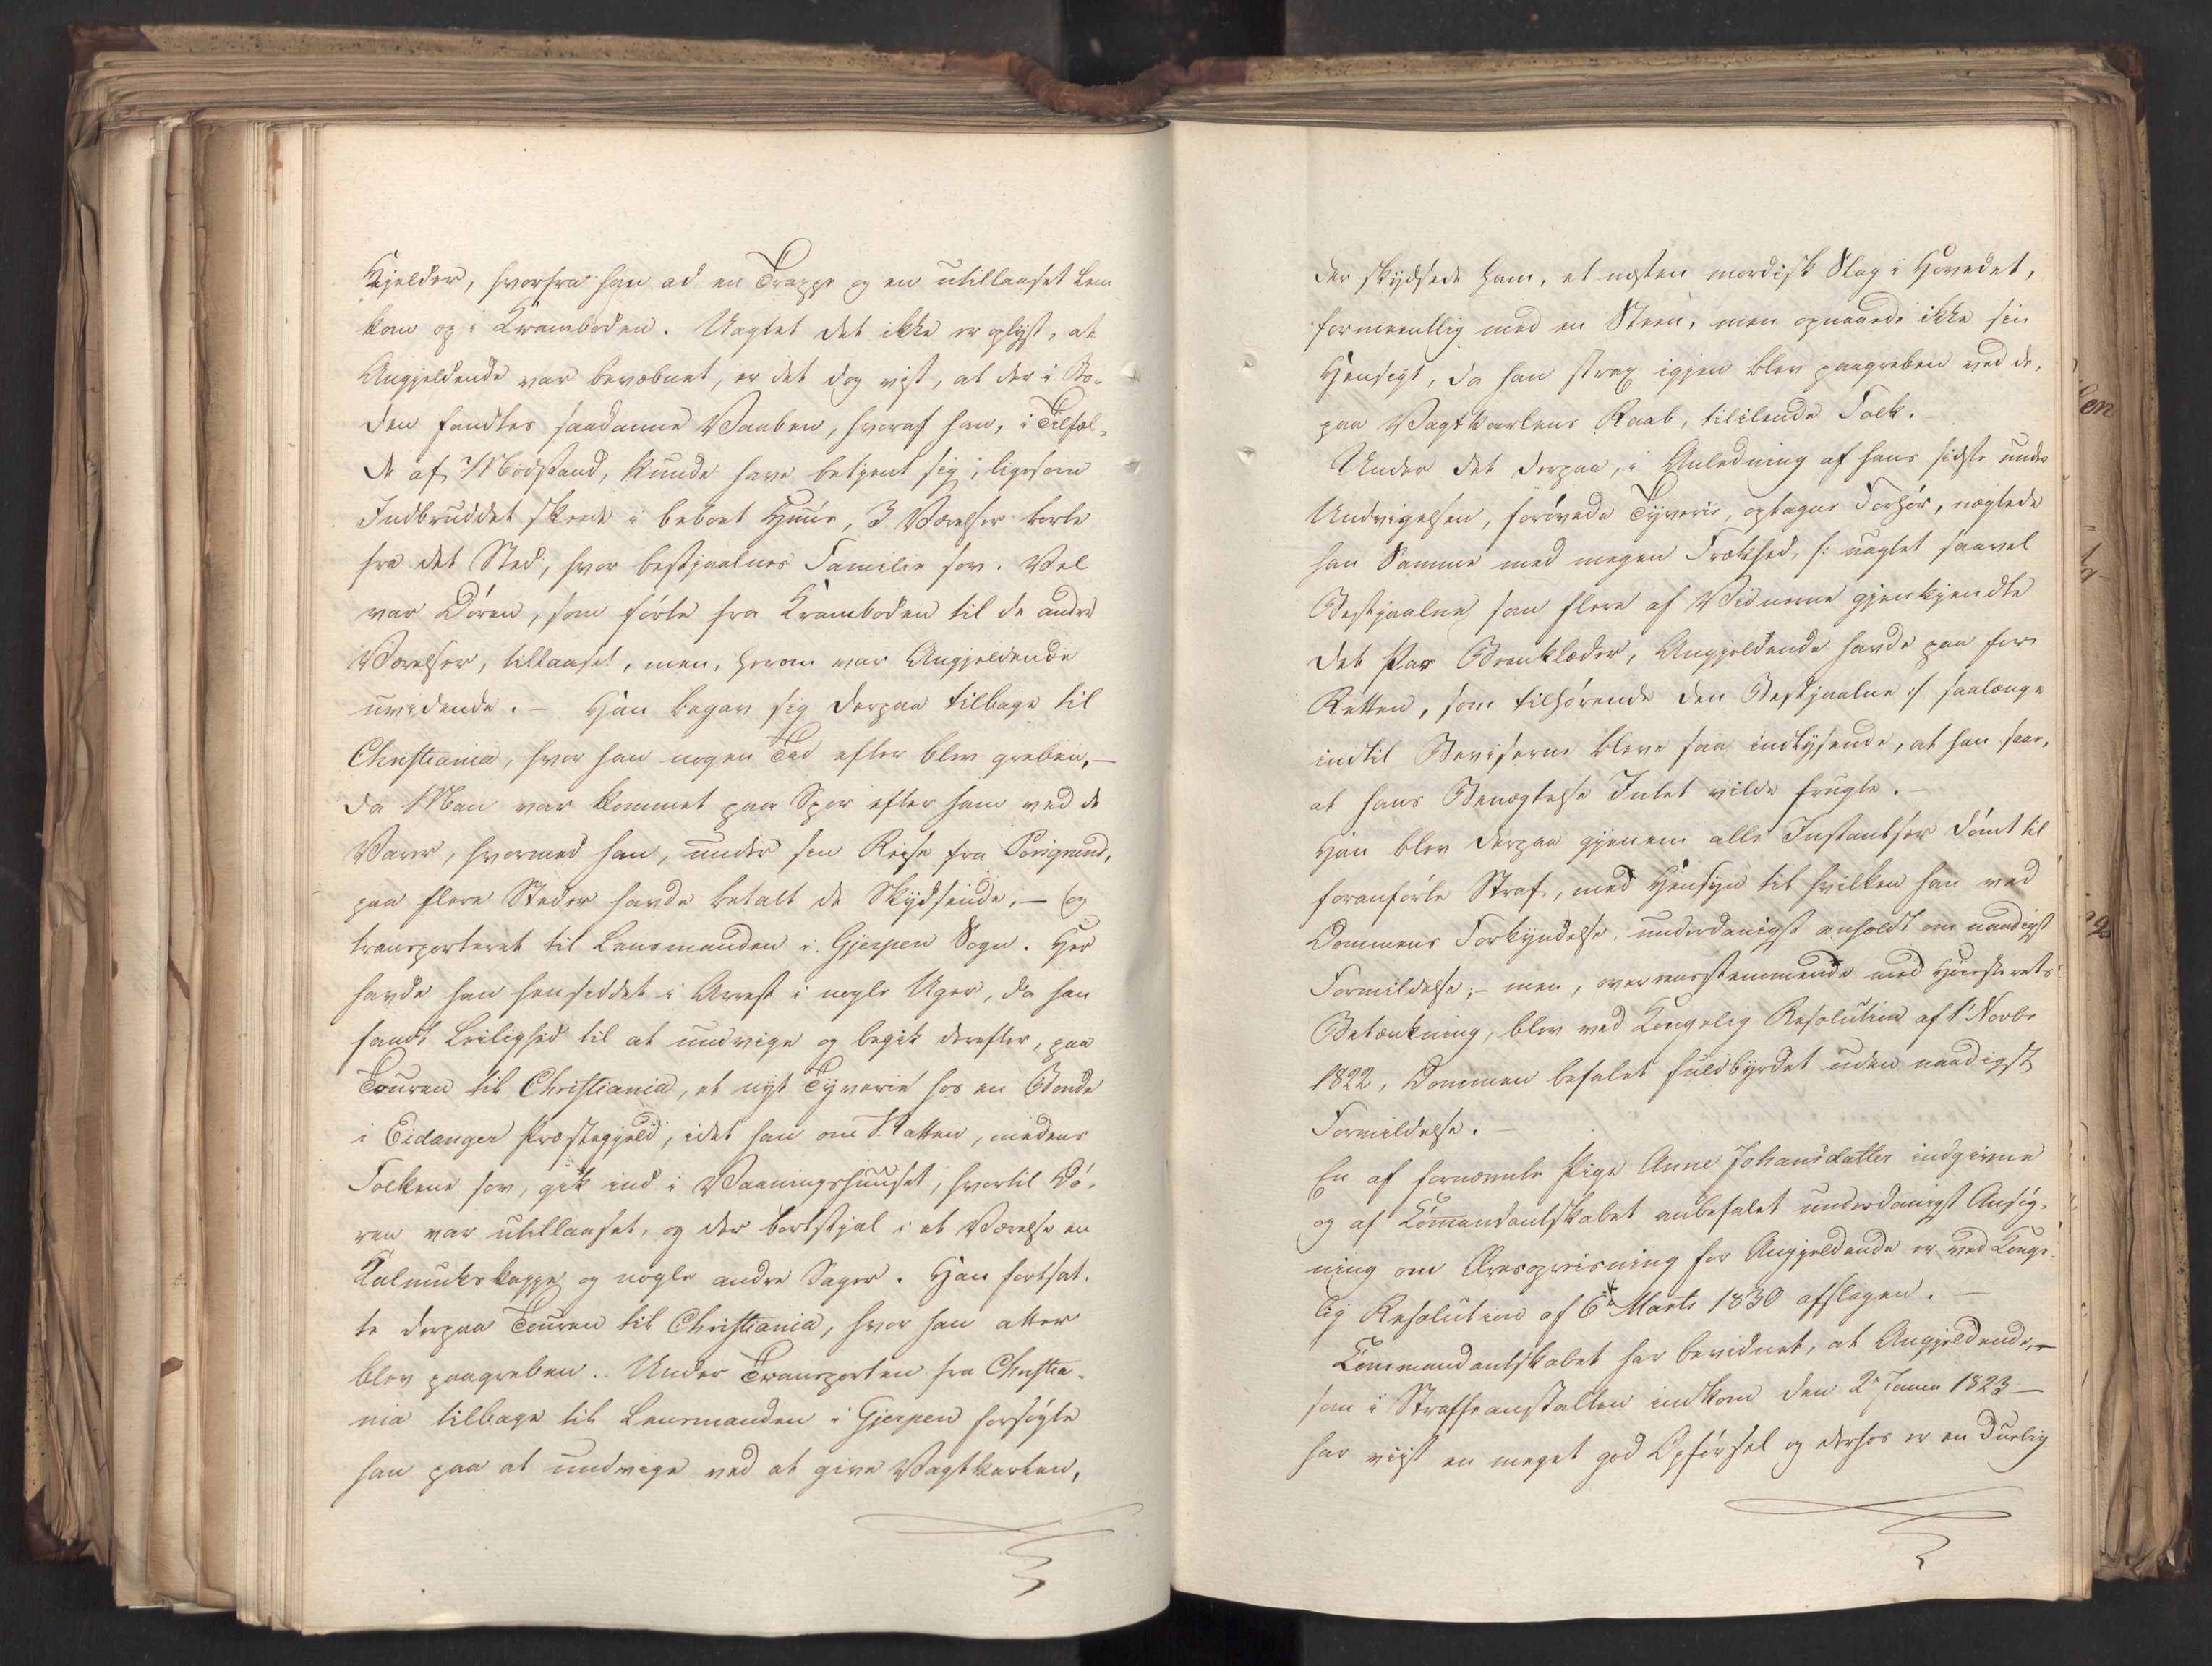 Kjelder, hvorfra han ad en Trappe og en utillaaset Lem
kom op i Kramboden. Uagtet det ikke er oplyst, at
Angjeldende var bevæbnet, er det dog vist, at der i Bo-
den fandtes saadanne Vaaben, hvoraf han, i Tilfæl-
de af Modstand, kunde have betjent sig; ligesom
Indbruddet skeede i beboet Huus, 3 Værelser borte
fra det Sted, hvor bestjaalnes Familie sov. Vel
var Dören, som förte fra Kramboden til de andre
Værelser, tillaaset, men, herom var Angjeldende
uvidende. – Han begav sig derpaa tilbage til
Christiania, hvor han nogen Tid efter blev greben, –
da Man var kommet paa Spor efter ham ved de
Varer, hvormed han, under sin Reise fra Porsgrund,
paa flere Steder havde betalt de Skydsende, – og
transporteret til Lensmanden i Gjerpen Sogn. Her
havde han hensiddet i Arrest i nogle Uger, da han
fandt Leilighed til at undvige og begik derefter, paa
Touren til Christiania, et nyt Tyverie hos en Bonde
i Eidanger Præstegjeld, idet han om Natten, medens
Folkene sov, gik ind i Vaaningshuuset, hvortil Dö-
ren var utillaaset, og der bortstjal i et Værelse en
Kalmukskappe og nogle andre Sager. Han fortsat-
te derpaa Touren til Christiania, hvor han atter
blev paagreben. Under Transporten fra Christia-
nia tilbage til Lensmanden i Gjerpen forsögte
han paa at undvige ved at give Vagtkarlen,
der skydsede ham, et næsten mordisk Slag i Hovedet,
formeentlig med en Steen, men opnaaede ikke sin
Hensigt, da han strax igjen blev paagreben ved de,
paa Vagtkarlens Raab, tililende Folk. –
Under det derpaa, i Anledning af hans sidste under
Undvigelsen, forövede Tyverie, optagne Forhör, nægtede
han Samme med megen Frækhed, /: uagtet saavel
Bestjaalne som flere af Vidnerne gjenkjendte
det Par Beenklæder, Angjeldende havde paa for
Retten, som tilhörende den Bestjaalne :/ saalænge
indtil Beviserne bleve saa indlysende, at han saae,
at hans Benægtelse Intet vilde frugte. –
Han blev derpaa gjennem alle Instantser dömt til
foranförte Straf, med Hensyn til hvilken han ved
Dommens Forkyndelse, underdanigst anholdt om naadigst
Formildelse; – men, overeensstemmende med Höiesterets
Betænkning, blev ved Kongelig Resolution af 1 Novbr
1822, Dommen befalet fuldbyrdet uden naadigst
Formildelse. –
En af fornævnte Pige Anne Johansdatter indgiven
og af Commandantskabet anbefalet underdanigst Ansög-
ning om Æresopreisning for Angjeldende er ved Konge-
lig Resolution af 6te Marts 1830 afslagen. –
Commandantskabet har bevidnet, at Angjeldende, –
som i Straffeanstalten indkom den 2 Januar 1823 –
har viist en meget god Opförsel og derhos er en duelig